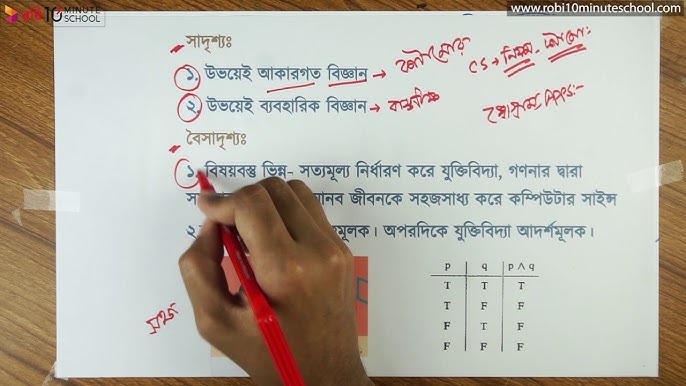 রবি 10 MINUTE SCHOOL
www.robi10minuteschool.com
সাদৃশ্যঃ
১. উভয়েই আকারগত বিজ্ঞান →
CS → নিয়ম -
২. উভয়েই ব্যবহারিক বিজ্ঞান →
বৈসাদৃশ্যঃ
১. বিষয়বস্তু ভিন্ন- সত্যমূল্য নির্ধারণ করে যুক্তিবিদ্যা, গণনার দ্বারা
মানব জীবনকে সহজসাধ্য করে কম্পিউটার সাইন্স
২. মূলক। অপরদিকে যুক্তিবিদ্যা আদর্শমূলক।
p q p ∧ q
T T T
T F F
F T F
F F F